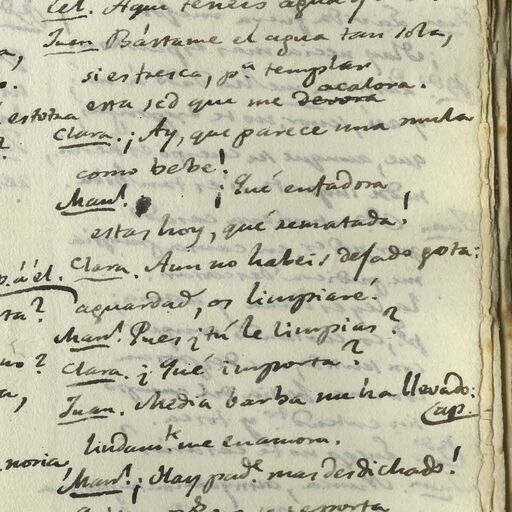 Cel. Aqui teneis agua y
Juan Bástame el agua tan sola,
si es fresca, pª templar
acalora.
esta sed que me devora
estotra
Clara. ¡Ay, que parece una mula
como bebe!
Man.l ¡Qué enfadosa
estas hoy, qué rematada!
Clara. Aun no habeis dejado gota:
p. á él.
aguardad, os limpiaré.
ta?
Man.l Pues ¿tú le limpias?
Clara. ¿Qué importa?
no?
Juan. Media barba me ha llevado:
ap.
lindam.te me enamora.
noria
Man.l ¡Hay pad.e mas desdichado!